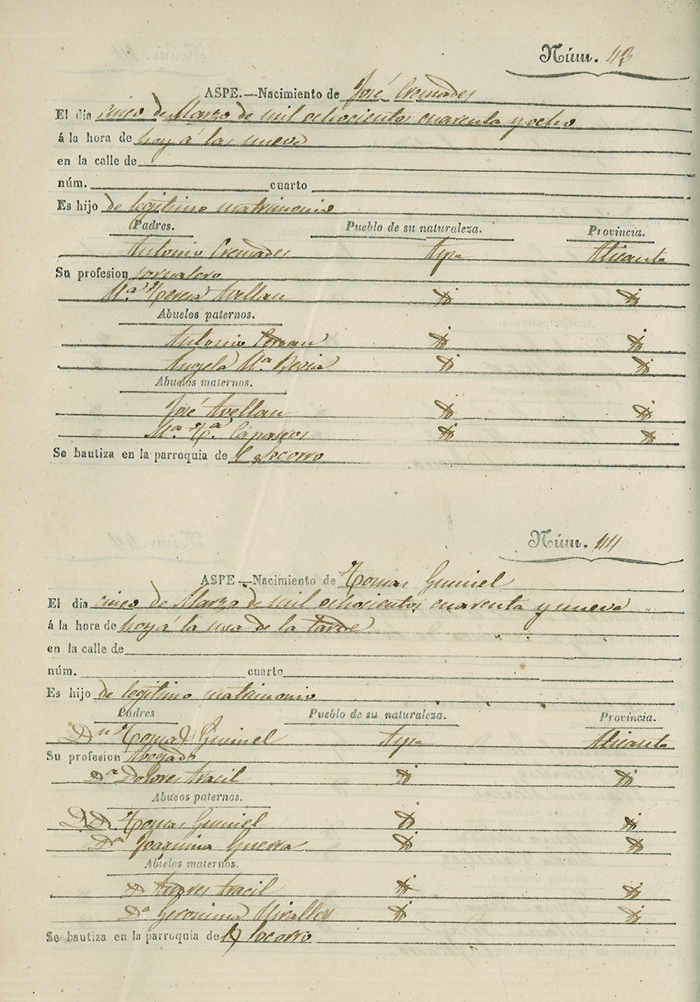 Núm. 43
ASPE.—Nacimiento de José Cremades
El dia cinco de Marzo de mil ochocientos cuarenta y ocho
á la hora de hoy á las nueve
en la calle de
núm. cuarto
Es hijo de legitimo matrimonio
Padres. Pueblo de su naturaleza. Provincia.
Antonio Cremades Aspe Alicante
Su profesion Jornalero
Mª Teresa Avellan
Abuelos paternos.
Antonio
Angela Mª
Abuelos maternos.
José Avellan
Se bautiza en la parroquia de El Socorro
Núm. 44
ASPE.—Nacimiento de Tomas Gumiel
El dia cinco de Marzo de mil ochocientos cuarenta y nueve
á la hora de hoy á la una de la tarde
en la calle de
núm. cuarto
Es hijo de legitimo matrimonio
Padres Pueblo de su naturaleza. Provincia.
Dn Tomas Gumiel Aspe Alicante
Su profesion Abogado
Dª Dolores Aracil
Abueos paternos.
Dn Tomas Gumiel
Dª Joaquina Guerra
Abuelos maternos.
Dn Andres Aracil
Dª Geronima Miralles
Se bautiza en la parroquia de El Socorro